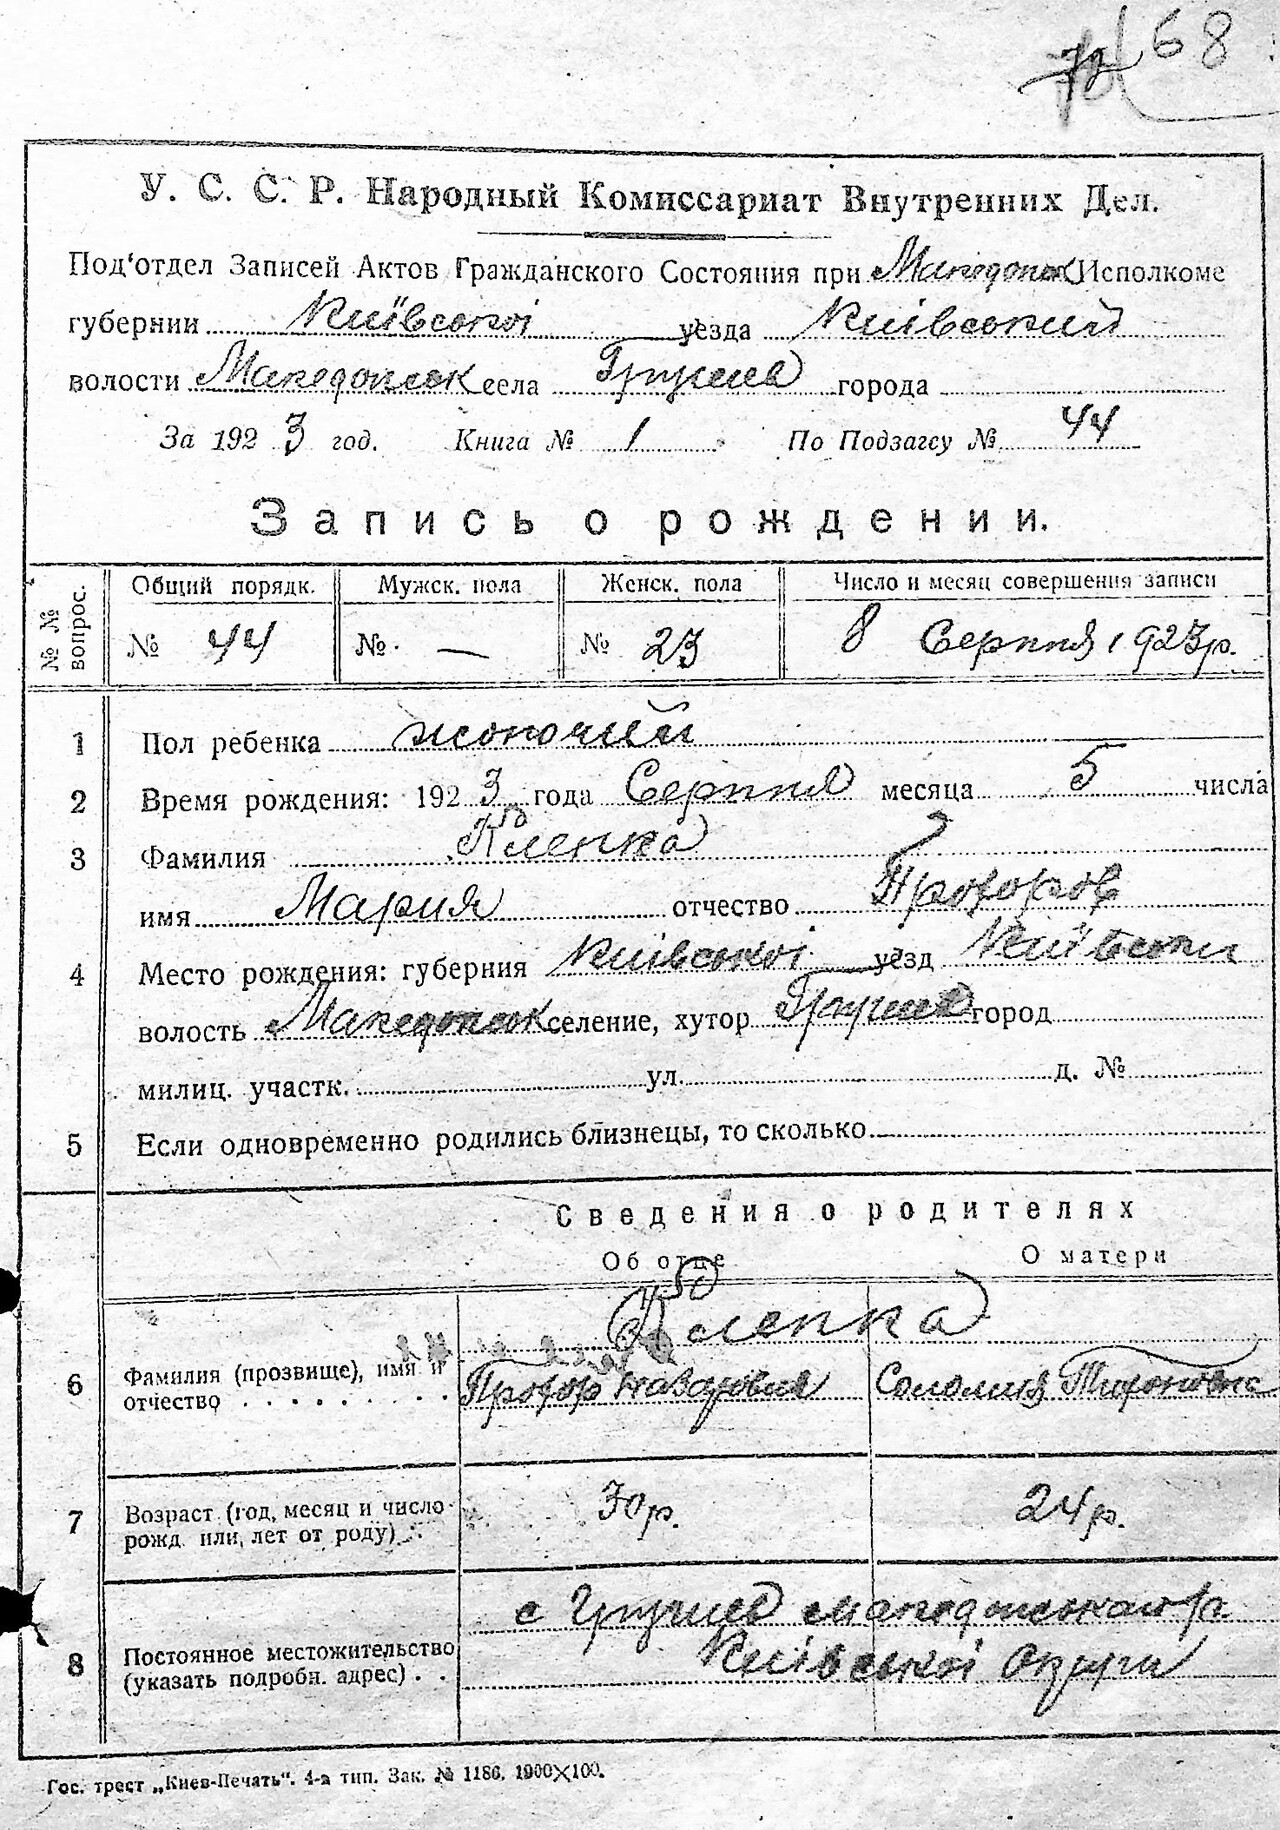 68
У. С. С. Р. Народный Комиссариат Внутренних Дел.
Под'отдел Записей Актов Гражданского Состояния при Македонськ Исполкоме
губернии Київської уезда Київський
волости Македонськ села города
За 192 3 год. Книга № 1 По Подзагсу № 44
Запись о рождении.
№ № вопрос. Общий порядк. Мужск. пола Женск. пола Число и месяц совершения записи
№ 44 № — № 23 8 Серпня 1923 р.
1 Пол ребенка жоночий
2 Время рождения: 192 3 года Серпня месяца 5 числа
3 Фамилия
имя Мария отчество Прохоров
4 Место рождения: губерния Київської уезд
волость Македонськ селение, хутор город
милиц. участк. ул. д. №
5 Если одновременно родились близнецы, то сколько
Сведения о родителях
Об отце О матери
6 Фамилия (прозвище), имя и
отчество Прохор Назаровия Соломия Тихоновна
7 Возраст (год, месяц и число
рожд. или, лет от роду) 30 р. 24 р.
с
8 Постоянное местожительство Київської Округи
(указать подробн. адрес)
Гос. трест „Киев-Печать". 4-а тип. Зак. № 1186. 1900×100.